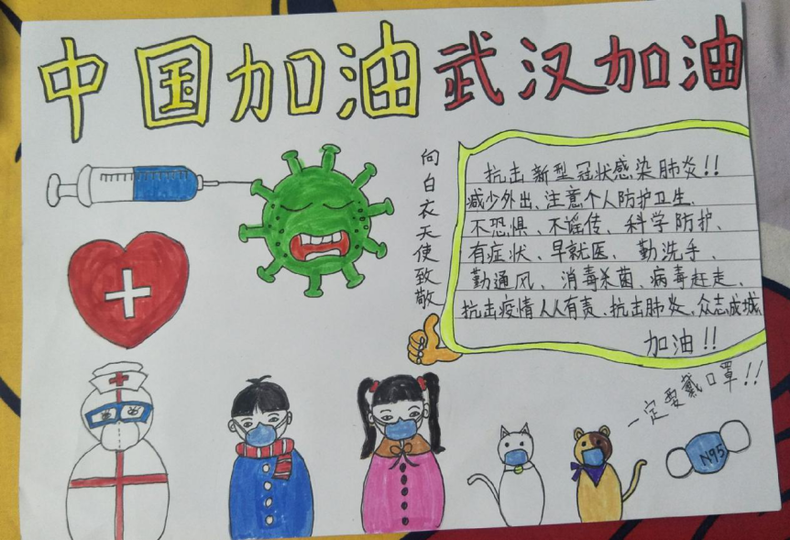 中国加油武汉加油
向白衣天使致敬
抗击新型冠状感染肺炎!!
减少外出、注意个人防护卫生、
不恐惧、不谣传、科学防护、
有症状、早就医、勤洗手、
勤通风、消毒杀菌、病毒赶走、
抗击疫情人人有责、抗击肺炎、众志成城
加油!!
一定要戴口罩!!
N95